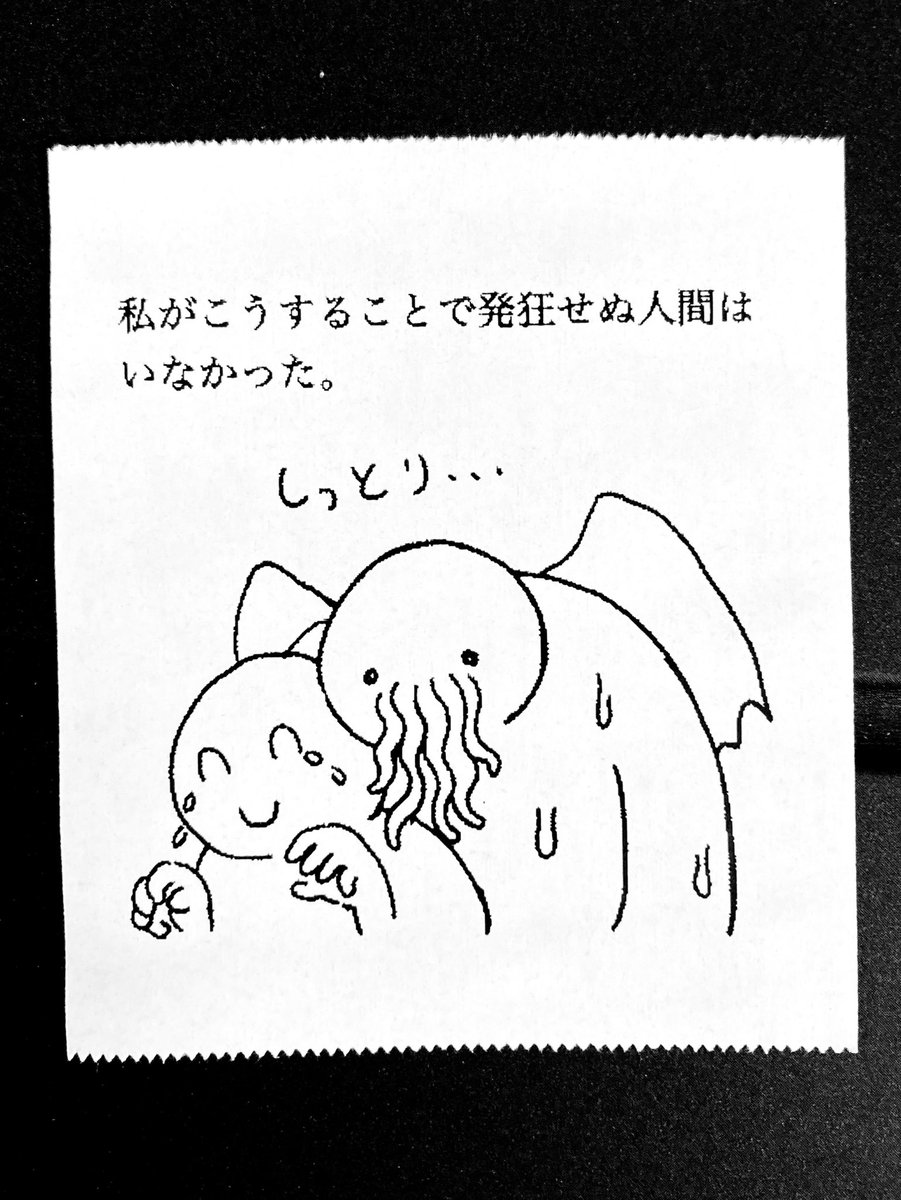 私がこうすることで発狂せぬ人間は
いなかった。
しっとり···